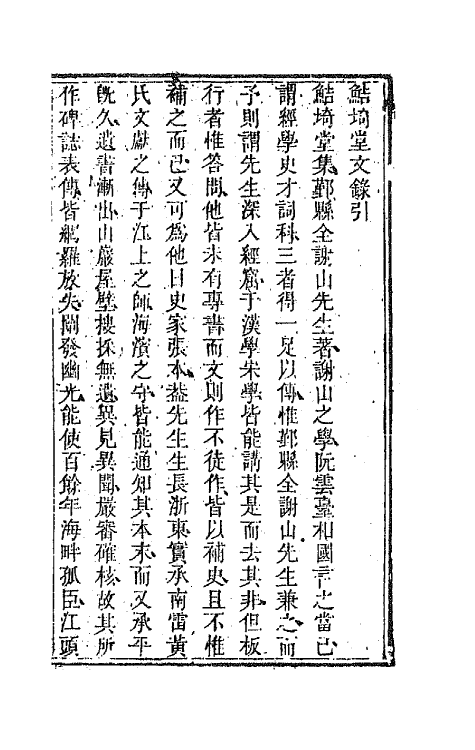 鮚埼堂文錄引
鮚埼堂集鄞縣全謝山先生著謝山之學阮雲臺相國言之當已
謂經學史才詞科三者得一足以傳惟鄞縣全謝山先生兼之而
予則謂先生深入經窟于漢學朱學皆能講其是而去其非但板
行者惟答問他皆未有專書而文則作不徒作皆以補史且不惟
補之而已又可為他日史家張本葢先生生長浙東實承南雷黃
氏文獻之傳于江上之師海濱之守皆能通知其本末而又承平
旣久遺書漸出山巖屋壁搜採無遺異見異聞嚴審確核故其所
作碑誌表傳皆網羅放失闡發幽光能使百餘年海畔孤臣江頭